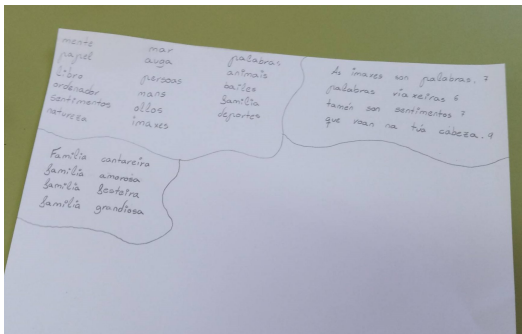 mente
papel
libro
ordenador
sentimentos
natureza
mar
auga
persoas
mans
ollos
imaxes
palabras
animais
bailes
familia
deportes
As imaxes son palabras. 7
palabras viaxeiras 6
tamén son sentimentos 7
que voan na túa cabeza. 9
Familia cantareira
familia amorosa
familia festeira
familia grandiosa